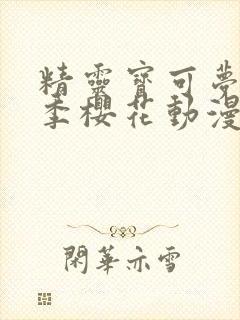 精靈寶可夢
季櫻花動漫
閑華亦雪